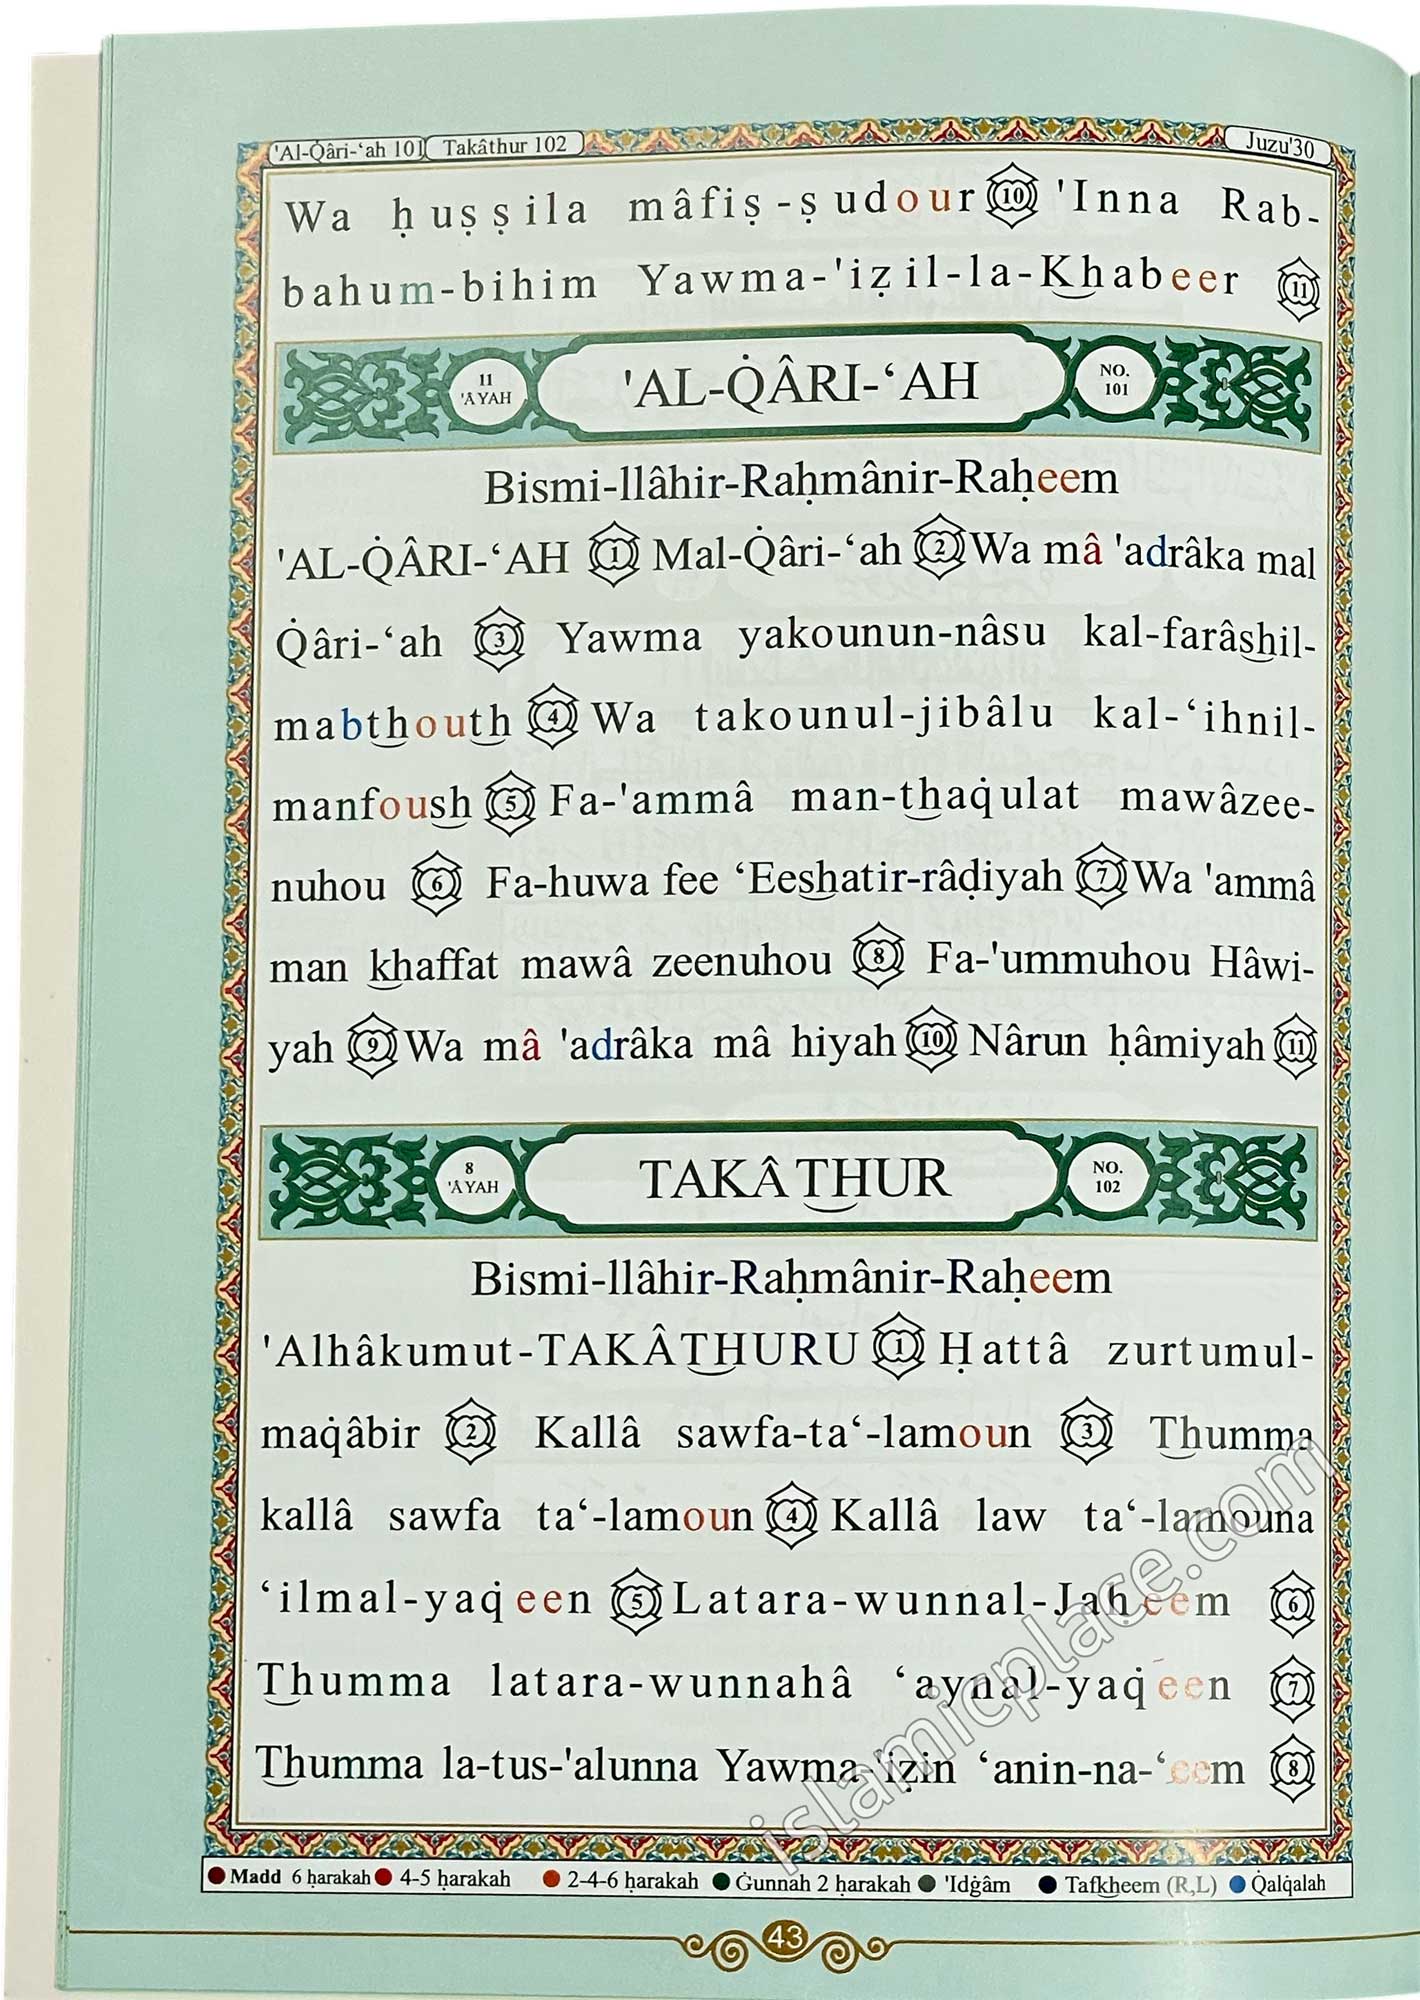 'Al-Q̇âri-‘ah 101 Takâthur 102 Juzu'30
Wa ḥuṣṣila mâfiṣ-ṣudour 10 'Inna Rab-
bahum-bihim Yawma-'iẓil-la-Khabeer 11
11 'ÂYAH 'AL-Q̇ÂRI-‘AH NO. 101
Bismi-llâhir-Raḥmânir-Raḥeem
'AL-Q̇ÂRI-‘AH 1 Mal-Q̇âri-‘ah 2 Wa mâ 'adrâka mal
Q̇âri-‘ah 3 Yawma yakounun-nâsu kal-farâshil-
mabthouth 4 Wa takounul-jibâlu kal-‘ihnil-
manfoush 5 Fa-'ammâ man-thaq̇ulat mawâzee-
nuhou 6 Fa-huwa fee ‘Eeshatir-râḍiyah 7 Wa 'ammâ
man khaffat mawâ zeenuhou 8 Fa-'ummuhou Hâwi-
yah 9 Wa mâ 'adrâka mâ hiyah 10 Nârun ḥâmiyah 11
8 'ÂYAH TAKÂTHUR NO. 102
Bismi-llâhir-Raḥmânir-Raḥeem
'Alhâkumut-TAKÂTHURU 1 Ḥattâ zurtumul-
maq̇âbir 2 Kallâ sawfa-ta‘-lamoun 3 Thumma
kallâ sawfa ta‘-lamoun 4 Kallâ law ta‘-lamouna
‘ilmal-yaq̇een 5 Latara-wunnal-Jaḥeem 6
Thumma latara-wunnahâ ‘aynal-yaq̇een 7
Thumma la-tus-'alunna Yawma-'iẓin ‘anin-na-‘eem 8
islamicplace.com
Madd 6 ḥarakah 4-5 ḥarakah 2-4-6 ḥarakah Ġunnah 2 ḥarakah 'Idġâm Tafkheem (R,L) Q̇alq̇alah
43